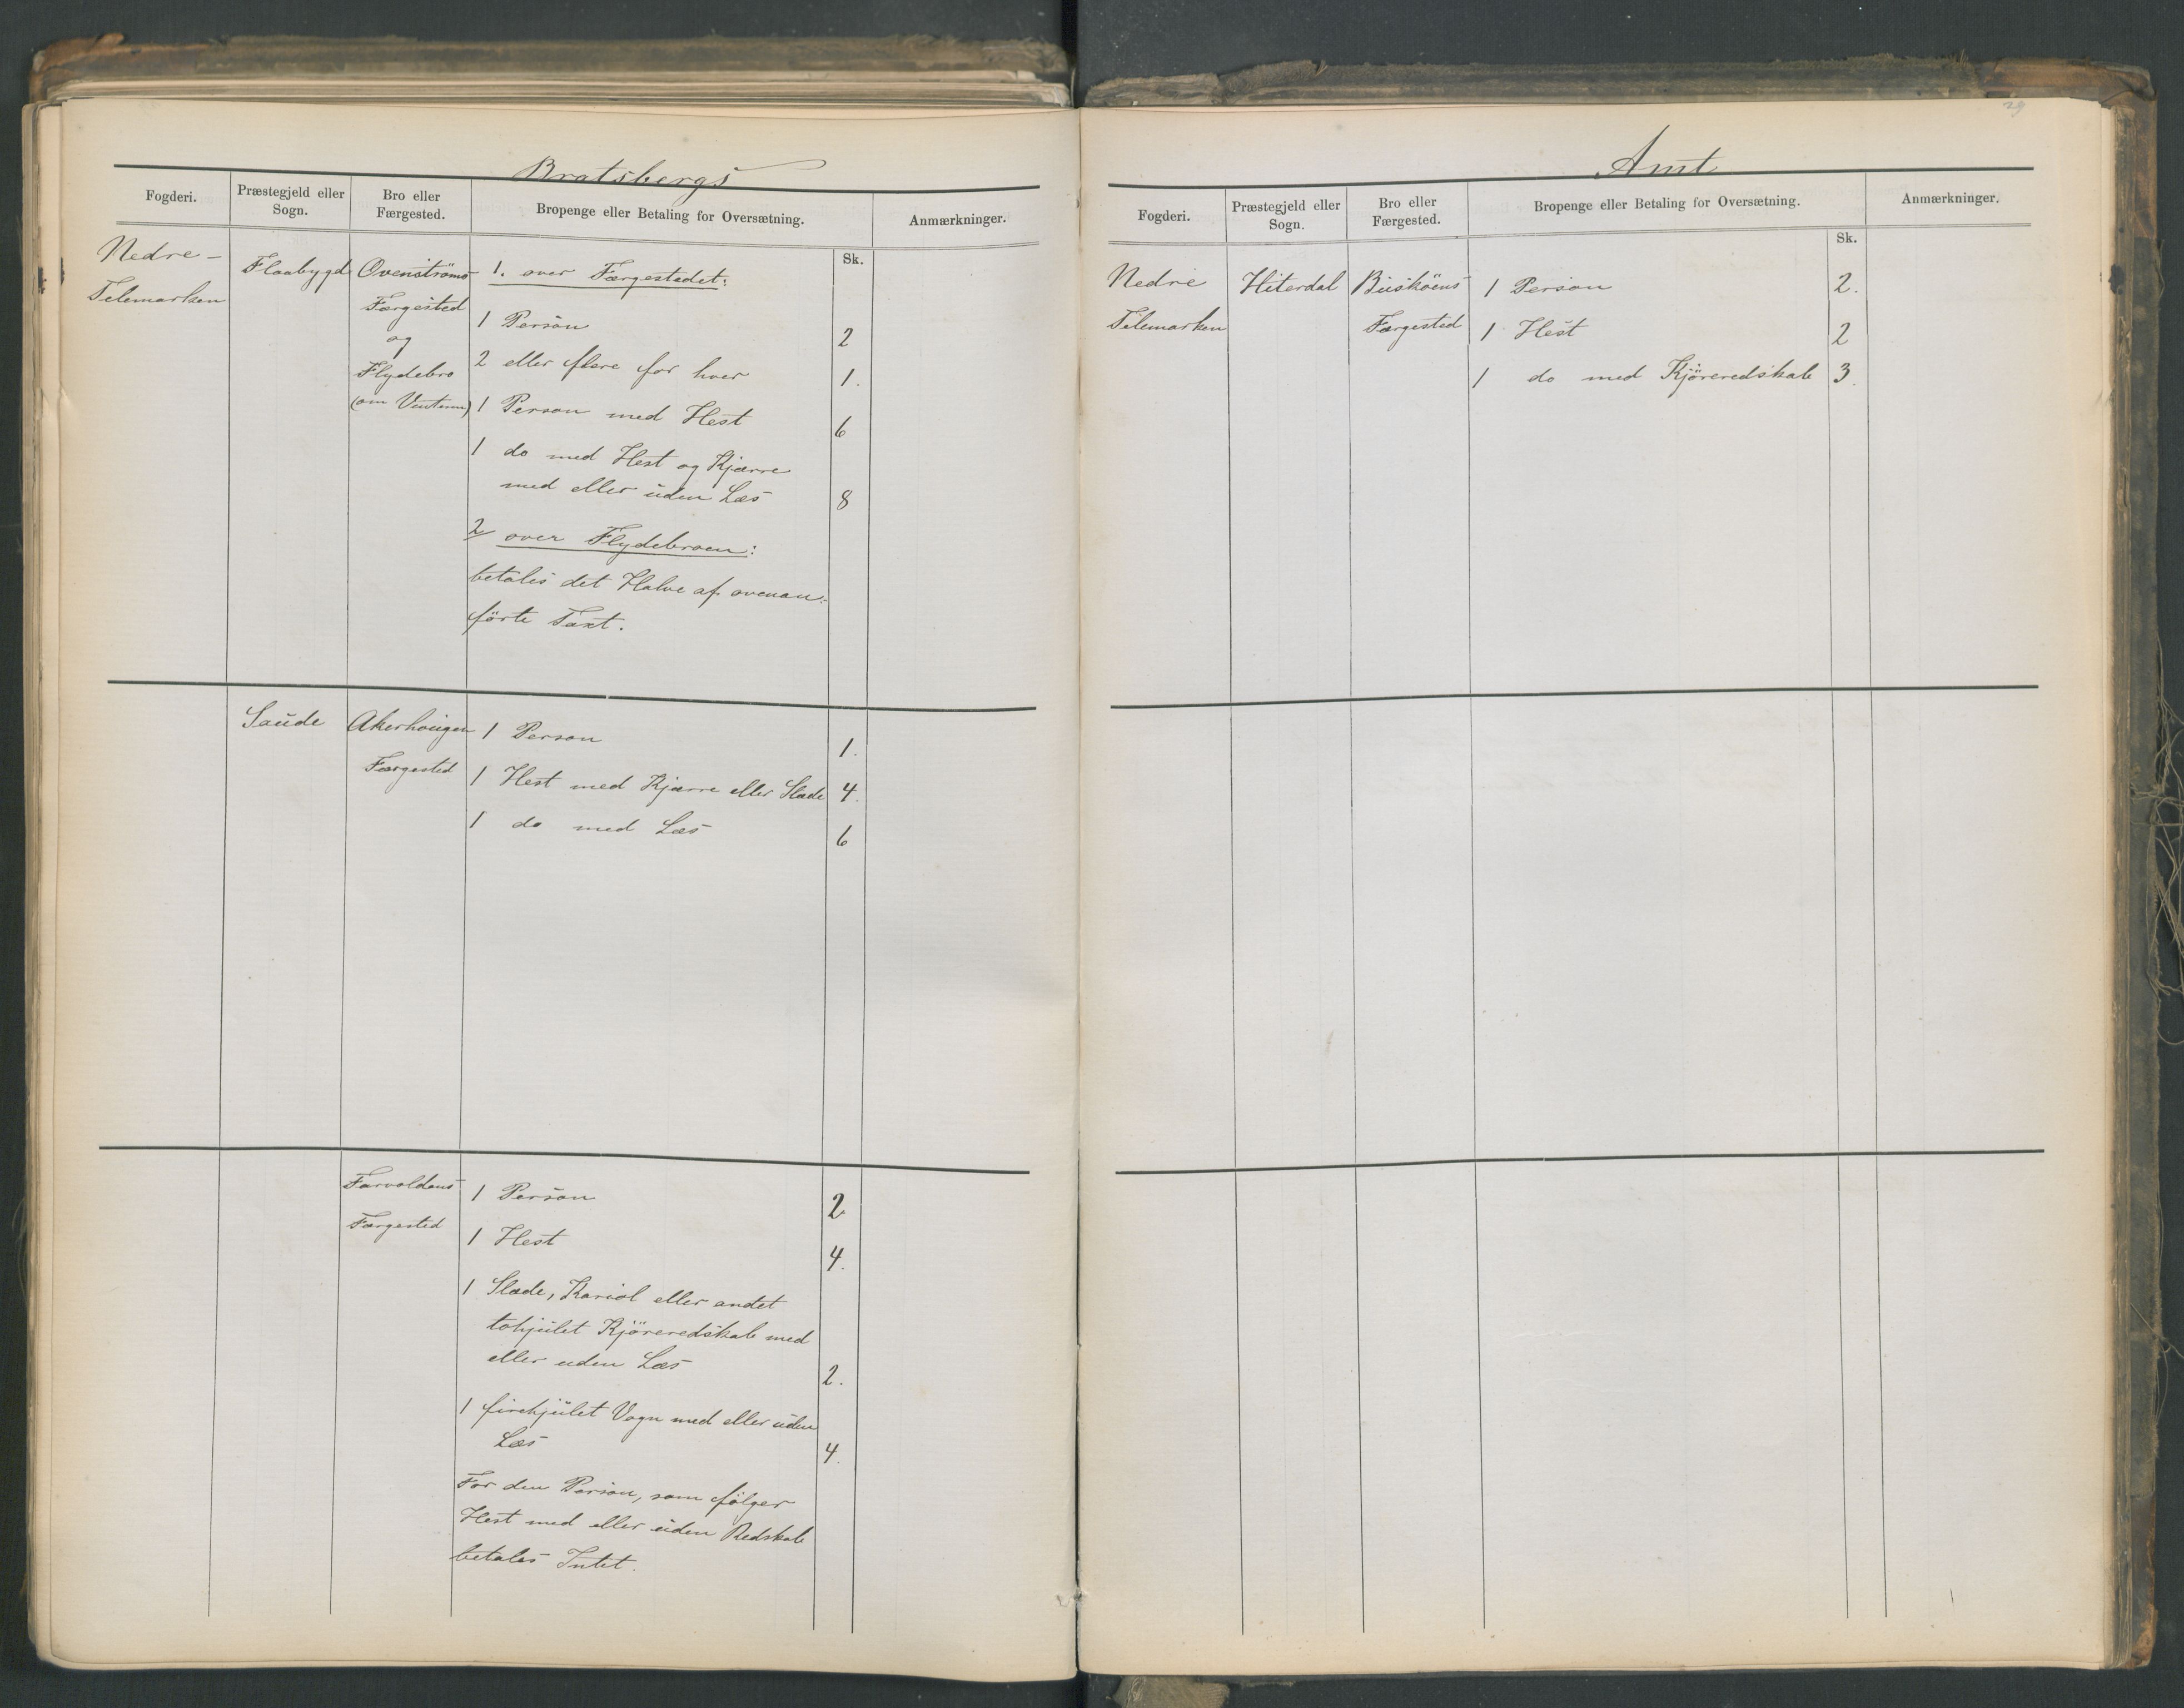 Bratsbergs
Fogderi.
Præstegjeld eller
Sogn.
Bro eller
Færgested.
Bropenge eller Betaling for Oversætning.
Anmærkninger.
Sk.
Nedre-
Telemarken
Flaabygd
Ovenströms
Færgested
og
Flydebro
(om Vinteren)
1. over Færgestedet:
1 Person 2
2 eller flere for hver 1.
1 Person med Hest 6
1 do med Hest og Kjærre
med eller uden Læs 8
2 over Flydebroen:
betales det Halve af ovenan-
förte Taxt.
Saude
Akerhaugen
Færgested
1 Person 1.
1 Hest med Kjærre eller Slæde 4.
1 do med Læs 6
Farvoldens
Færgested
1 Person 2
1 Hest 4.
1 Slæde, Kariol eller andet
tohjulet Kjöreredskab med
eller uden Læs 2.
1 firehjulet Vogn med eller uden
Læs 4.
For den Person, som fölger
Hest med eller uden Redskab
betales Intet.
29
Amt
Fogderi.
Præstegjeld eller
Sogn.
Bro eller
Færgested.
Bropenge eller Betaling for Oversætning.
Anmærkninger.
Sk.
Nedre
Telemarken
Hiterdal
Busköens
Færgested
1 Person 2.
1 Hest 2
1 do med Kjöreredskab 3.